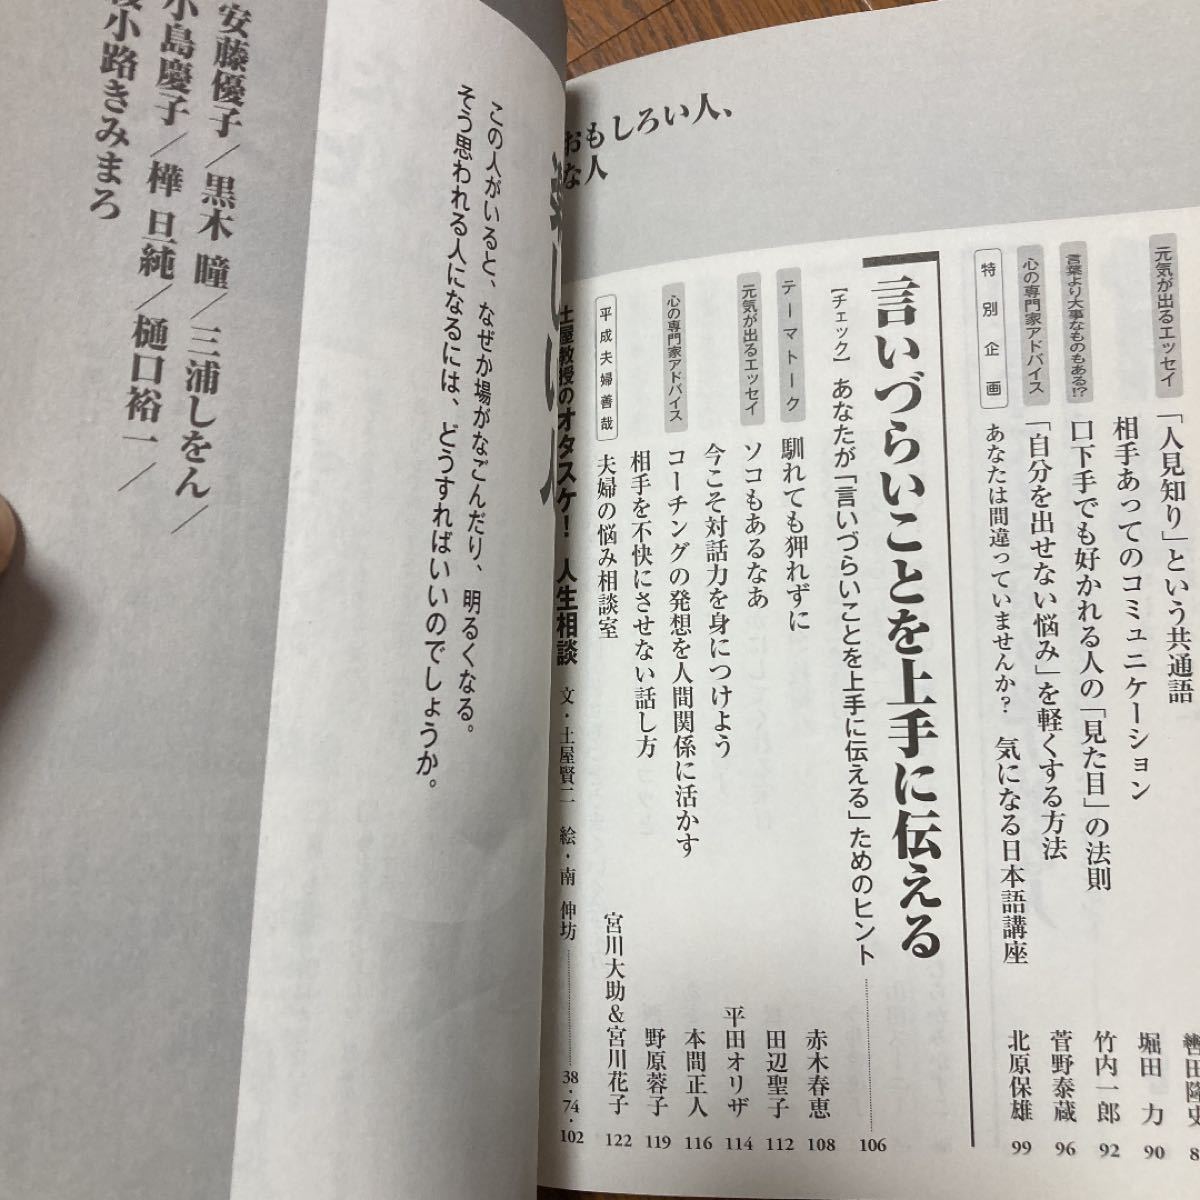 おもしろい人、
な人
元気が出るエッセイ
「人見知り」という共通語
相手あってのコミュニケーション
堀田 力
90
言葉より大事なものもある!?
口下手でも好かれる人の「見た目」の法則
竹内一郎
92
心の専門家アドバイス
「自分を出せない悩み」を軽くする方法
菅野泰蔵
96
特別企画
あなたは間違っていませんか? 気になる日本語講座
北原保雄
99
言いづらいことを上手に伝える
【チェック】あなたが「言いづらいことを上手に伝える」ためのヒント
106
テーマトーク
馴れても狎れずに
赤木春恵
108
元気が出るエッセイ
ソコもあるなあ
田辺聖子
112
今こそ対話力を身につけよう
平田オリザ
114
心の専門家アドバイス
コーチングの発想を人間関係に活かす
本間正人
116
相手を不快にさせない話し方
野原蓉子
119
平成夫婦善哉
夫婦の悩み相談室
宮川大助&宮川花子
122
土屋教授のオタスケ! 人生相談
文・土屋賢二 絵・南 伸坊
38・74・102
この人がいると、なぜか場がなごんだり、明るくなる。
そう思われる人になるには、どうすればいいのでしょうか。
安藤優子/黒木 瞳/三浦しをん/
小島慶子/樺 旦純/樋口裕一/
小路きみまろ